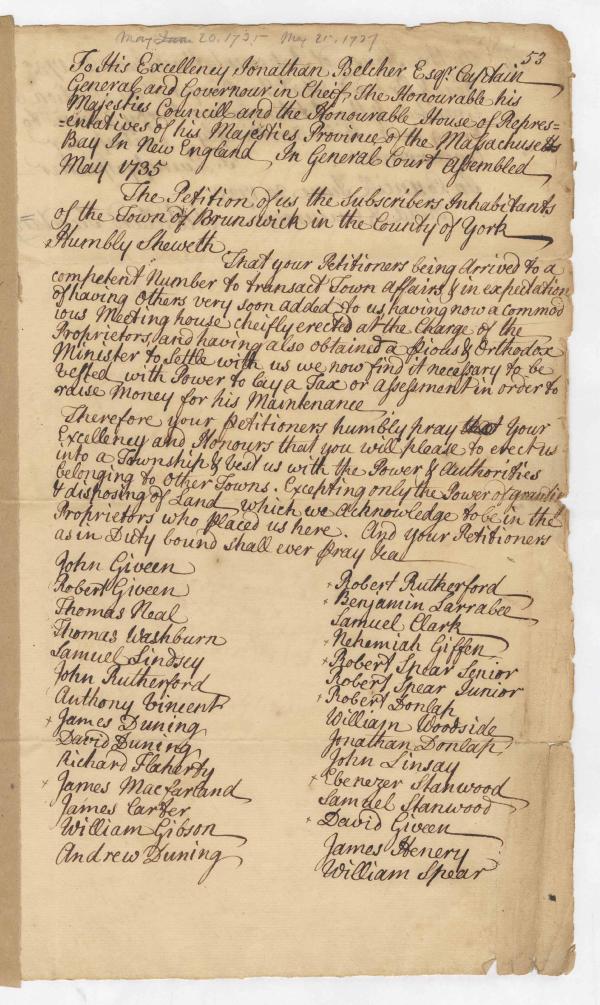 May June 20. 1735 May 25. 1737
53
To His Excellency Jonathan Belcher Esqr. Captain
General and Governour in Cheif The Honourable his
Majesties Councill and the Honourable House of Repres=
=entatives of his Majesties Province of the Massachusetts
Bay In New England In General Court assembled
May 1735
The Petition of us the Subscribers Inhabitants
of the Town of Brunswick in the County of York
Humbly Sheweth
That your Petitioners being arrived to a
competent Number to transact Town affairs & in expectation
of having Others very soon added to us, having now a commod
ious Meeting house cheifly erected at the Charge of the
Proprietors, and having also obtained a Pious & Orthodox
Minister to Settle with us we now find it necessary to be
vested with Power to lay a Tax or assessment in order to
raise Money for his Maintenance
Therefore your Petitioners humbly pray that Your
Excellency and Honours that you will please to erect us
into a Township & vest us with the Power & Authorities
belonging to Other Towns. Excepting only the Power of
& disposing of Land which we acknowledge to be in the
Proprietors who placed us here. And your Petitioners
as in Duty bound shall ever pray &ca
John Giveen
Robert Giveen
Thomas Neal
Thomas Washburn
Samuel Lindsey
John Rutherford
Anthony Vincent
× James Duning
David Duning
Richard Flaherty
× James Macfarland
James Carter
William Gibson
Andrew Duning
× Robert Rutherford
× Benjamin Larrabee
Samuel Clark
× Nehemiah Giffen
× Robert Spear Senior
Robert Spear Junior
× Robert Donlap
William Woodside
Jonathan Donlap
John Linsay
× Ebenezer Stanwood
Samuel Stanwood
× David Giveen
James Henery
William Spear